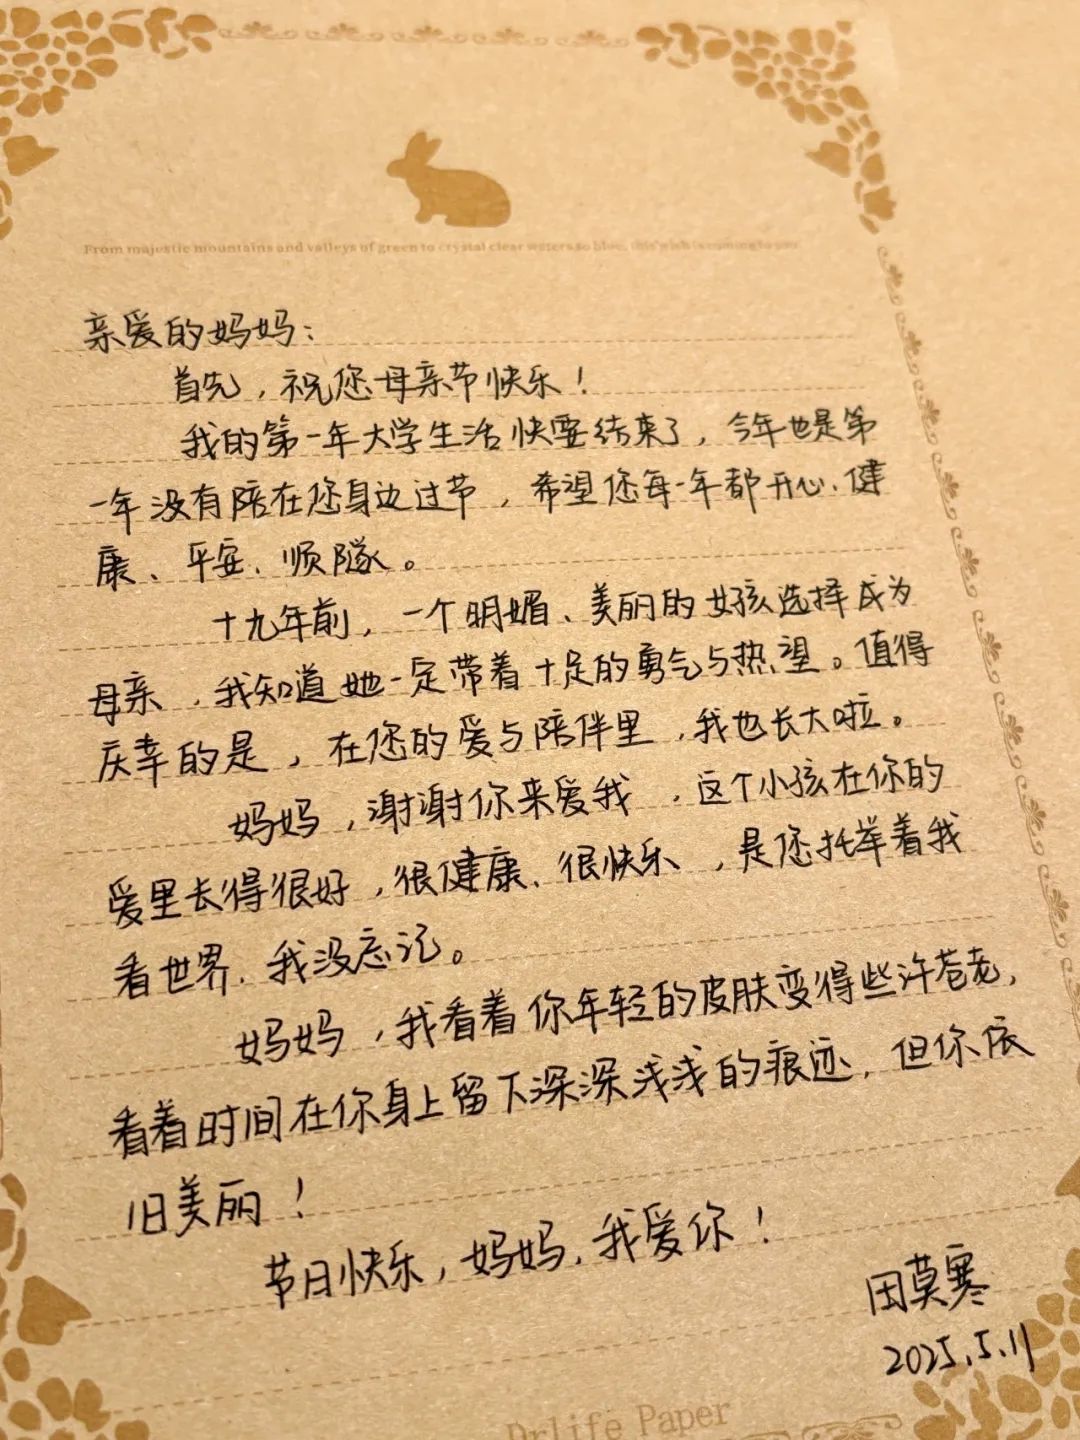 From majestic mountains and valleys of green to crystal clear waters so blue, this wish is coming to you
亲爱的妈妈：
首先，祝您母亲节快乐！
我的第一年大学生活快要结束了，今年也是第
一年没有陪在您身边过节，希望您每一年都开心、健
康、平安、顺隧。
十九年前，一个明媚、美丽的女孩选择成为
母亲，我知道她一定带着十足的勇气与热望。值得
庆幸的是，在您的爱与陪伴里，我也长大啦。
妈妈，谢谢你来爱我，这个小孩在你的
爱里长得很好，很健康、很快乐，是您托举着我
看世界，我没忘记。
妈妈，我看着你年轻的皮肤变得些许苍老，
看着时间在你身上留下深深浅浅的痕迹，但你依
旧美丽！
节日快乐，妈妈，我爱你！
田莫寒
2025.5.11
Drlife Paper